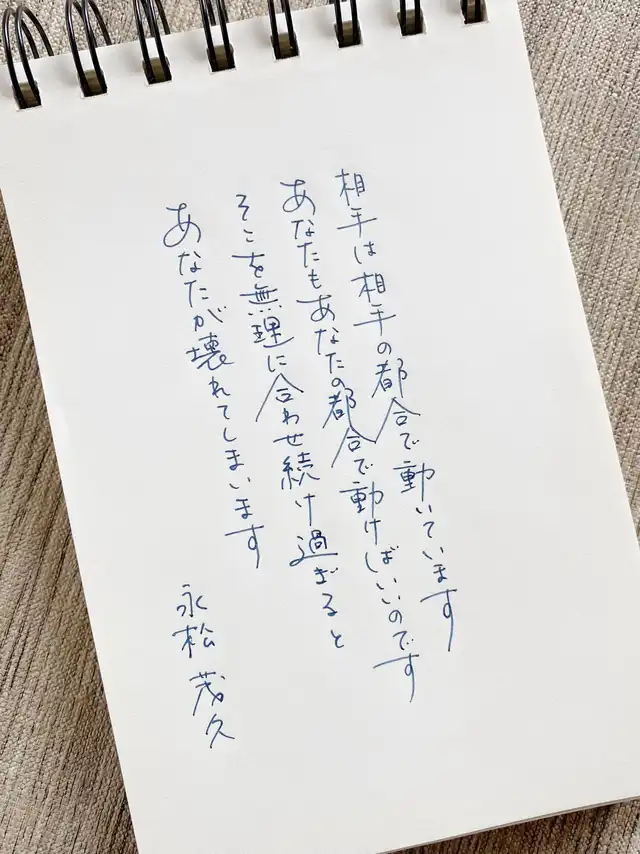 相手は相手の都合で動いています
あなたもあなたの都合で動けばいいのです
そこを無理に合わせ続け過ぎると
あなたが壊れてしまいます
永松茂久